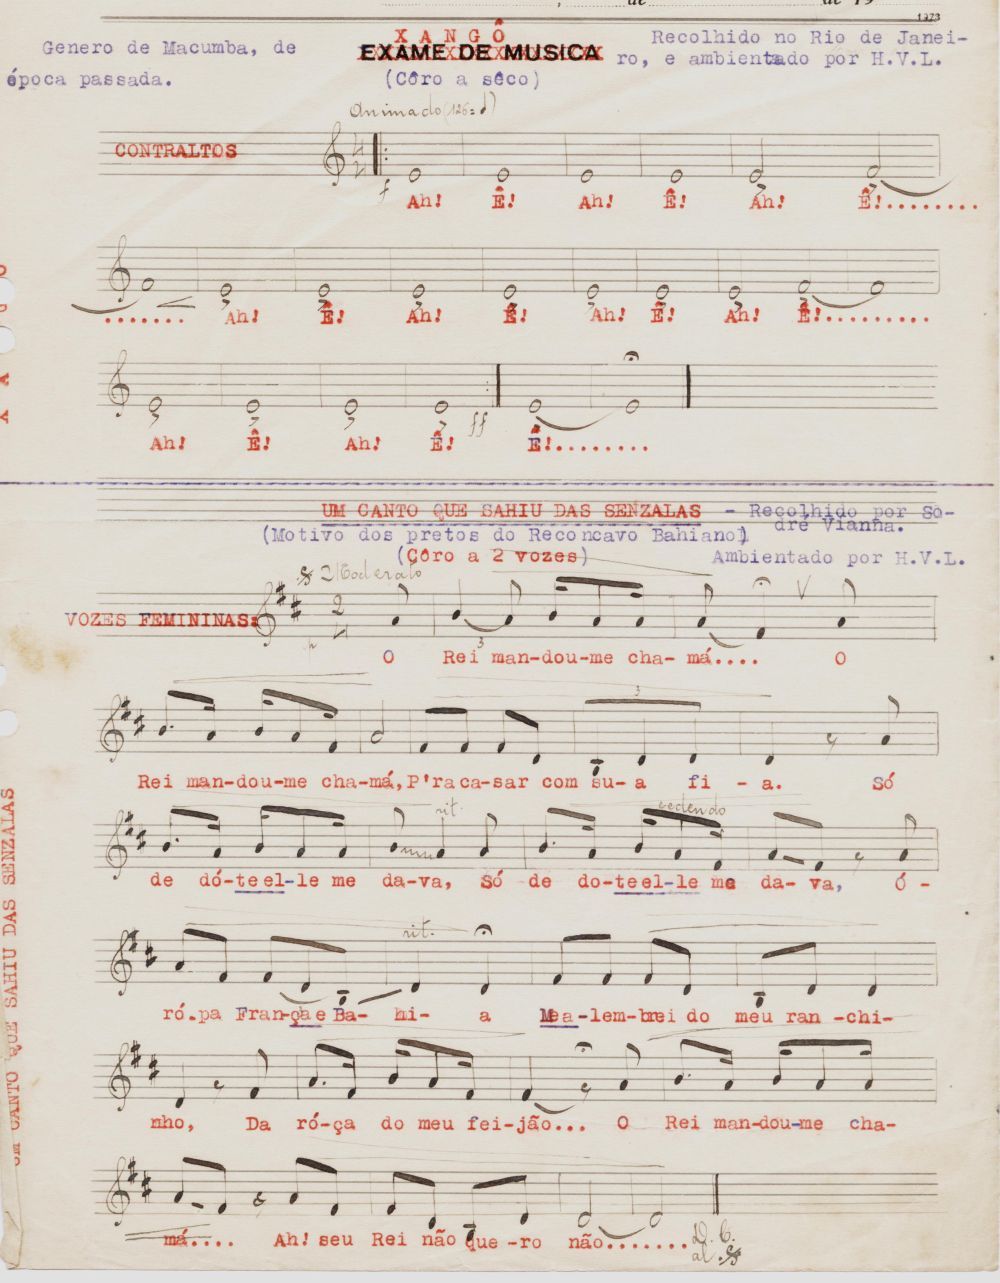 de de 19
1923
XANGÔ
Genero de Macumba, de EXAME DE MUSICA Recolhido no Rio de Janei-
época passada. (Côro a sêco) ro, e ambientado por H.V.L.
Animado (126=)
CONTRALTOS
f Ah! Ê! Ah! Ê! Ah! Ê!........
....... Ah! Ê! Ah! Ê! Ah! Ê! Ah! Ê!.........
Ah! Ê! Ah! Ê! ff Ê!........
UM CANTO QUE SAHIU DAS SENZALAS - Recolhido por So-
dré Vianna.
(Motivo dos pretos do Reconcavo Bahiano)
(Côro a 2 vozes) Ambientado por H.V.L.
Moderato
VOZES FEMININAS: 2
4
p 3
O Rei man-dou-me cha-má.... O
3
Rei man-dou-me cha-má, P'raca-sar com su-a fi - a. Só
rit. cedendo
de dó-teel-le me da-va, Só de do-teel-le me da- va, Ó-
rit.
ró-pa Fran-çae Ba- hi- a Mea-lem-brei do meu ran -chi-
nho, Da ró-ça do meu fei-jão... O Rei man-dou-me cha-
má.... Ah! seu Rei não que -ro não.......
D. C.
al
XANGÔ
UM CANTO QUE SAHIU DAS SENZALAS